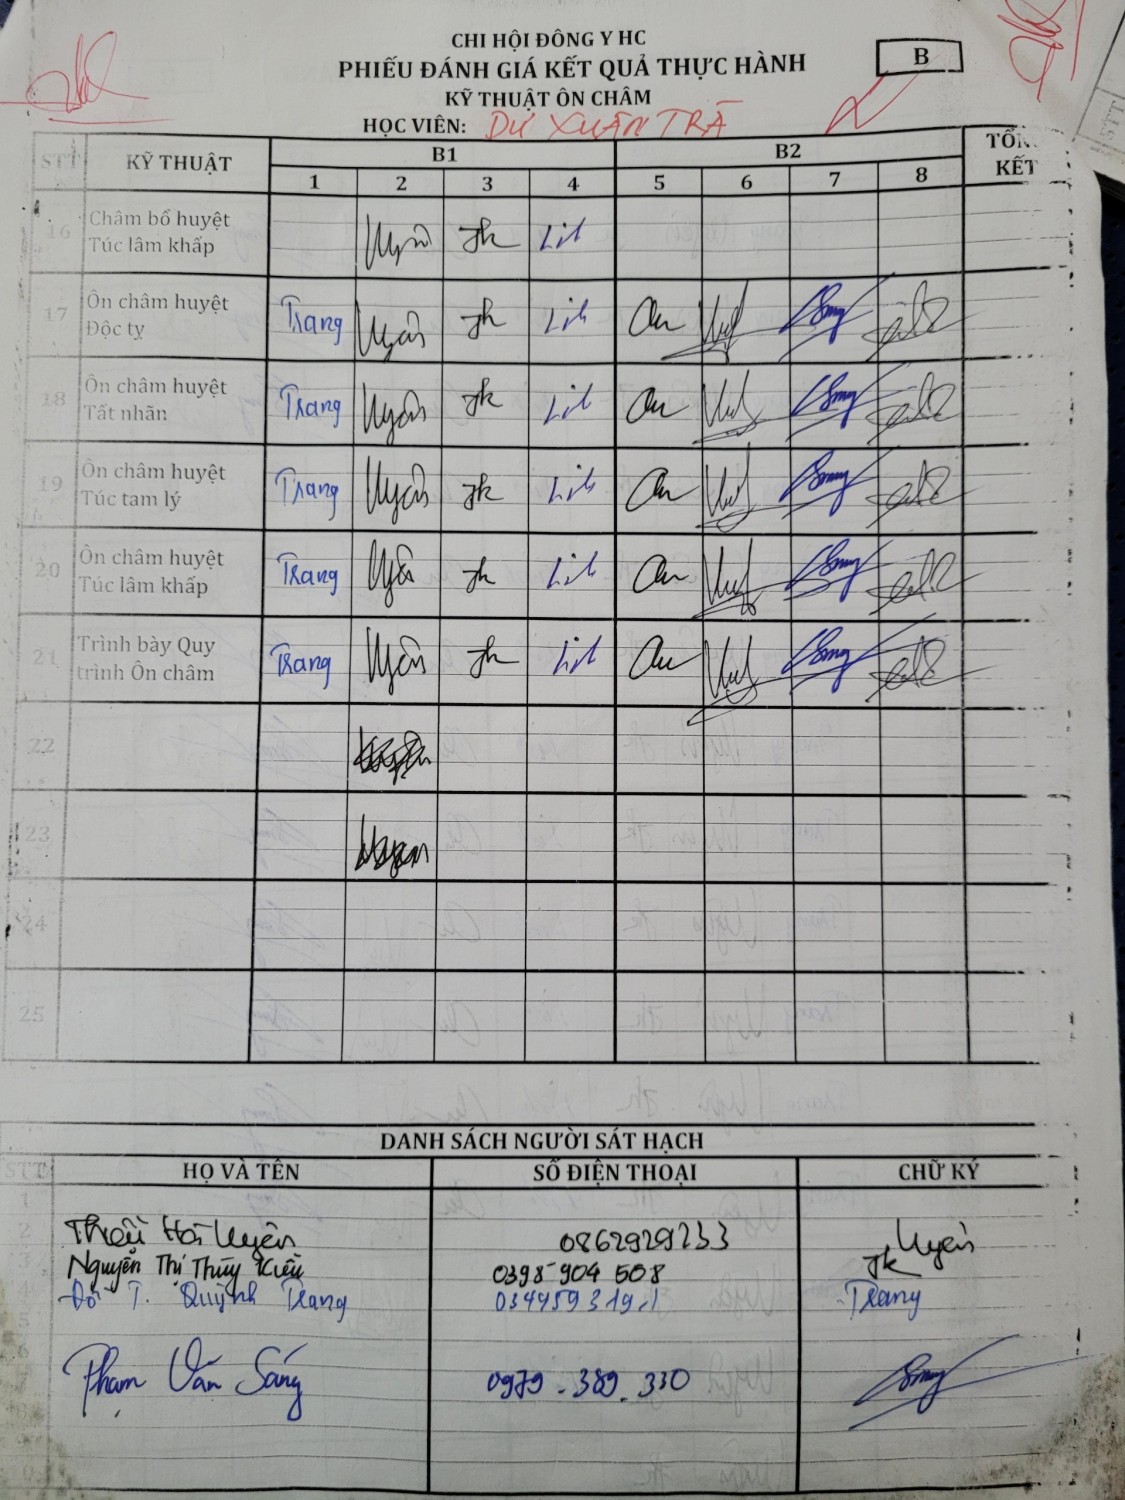 CHI HỘI ĐÔNG Y HC
PHIẾU ĐÁNH GIÁ KẾT QUẢ THỰC HÀNH
B
KỸ THUẬT ÔN CHÂM
HỌC VIÊN: DƯ XUÂN TRÃ
STT KỸ THUẬT B1 B2 TỔNG KẾT
1 2 3 4 5 6 7 8
16 Châm bổ huyệt Túc lâm khấp Uyên Jk Linh
17 Ôn châm huyệt Độc tỵ Trang Uyên Jk Linh
18 Ôn châm huyệt Tất nhãn Trang Uyên Jk Linh
19 Ôn châm huyệt Túc tam lý Trang Uyên Jk Linh
20 Ôn châm huyệt Túc lâm khấp Trang Uyên Jk Linh
21 Trình bày Quy trình Ôn châm Trang Uyên Jk Linh
22
23
24
25
DANH SÁCH NGƯỜI SÁT HẠCH
STT HỌ VÀ TÊN SỐ ĐIỆN THOẠI CHỮ KÝ
1
2 Hà Uyên 0862929233 Uyên
3 Nguyễn Thị Thúy Kiều 0398 904 508 Jk
4 Đỗ T. Quỳnh Trang Trang
5
6
Phạm Văn Sáng 0979.389.330